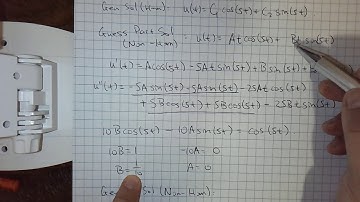 Gen Sol (Hom) = u(t) = C₁ cos(5t) + C₂ sin(5t)
Guess Part Sol
(Non-Hom) = u(t) = At cos(5t) + Bt sin(5t)
u'(t) = A cos(5t) - 5At sin(5t) + B sin(5t) +
u''(t) = -5A sin(5t) - 5A sin(5t) - 25At cos(5t)
+ 5B cos(5t) + 5B cos(5t) - 25Bt sin(5t)
10B cos(5t) - 10A sin(5t) = cos(5t)
10B = 1 -10A = 0
B = 1/10 A = 0
Gen Sol (Non-Hom)